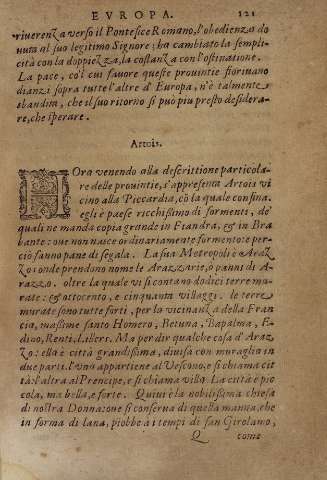 EVROPA. 121
riuerenza verso il Pontefice Romano, l'obedienza do
nuta al suo legitimo Signore; ha cambiato la sempli-
cità con la doppiezza, la costanza con l'ostinatione.
La pace, co'l cui fauore queste prouintie fioriuano
dianzi sopra tutte l'altre d'Europa, n'è talmente
sbandita, che il suo ritorno si può piu presto desidera-
re, che sperare.
Artois.
HOra venendo alla descrittione particola-
re delle prouintie, s'appresenta Artois vi
cino alla Piccardia, cõ la quale confina.
egli è paese ricchissimo di formenti, de'
quali ne manda copia grande in Fiandra, & in Bra
bante: oue non nasce ordinariamente formento: e per-
ciò fanno pane di segala. La sua Metropoli è Araz
zo: onde prendono nome le Arazzarie, o panni di A-
razzo. oltre la quale vi si contano dodici terre mu-
rate: & ottocento, e cinquanta villaggi. le terre
murate sono tutte forti, per la vicinanza della Fran
cia, massime santo Homero, Betuna, Bapalma, E-
dino, Renti, Lillers. Ma per dir qualche cosa d'Araz
zo: ella è città grandissima, diuisa con muraglia in
due parti. l'una appartiene al Vescouo, e si chiama cit
tà: l'altra al Prencipe, e si chiama villa. La città è pic
cola, ma bella, e forte. Quiui è la nobilissima chiesa
di nostra Donna: oue si conserua di quella manna, che
in forma di lana, piobbe a i tempi di san Girolamo,
Q come